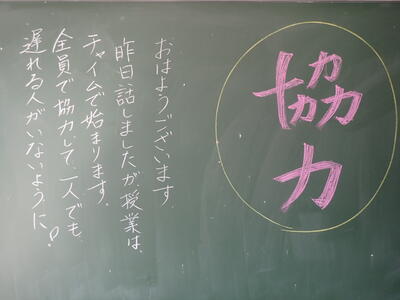 協力
おはようございます
昨日話しましたが、授業は、
チャイムで始まります。
全員で協力して、一人でも
遅れる人がいないように!